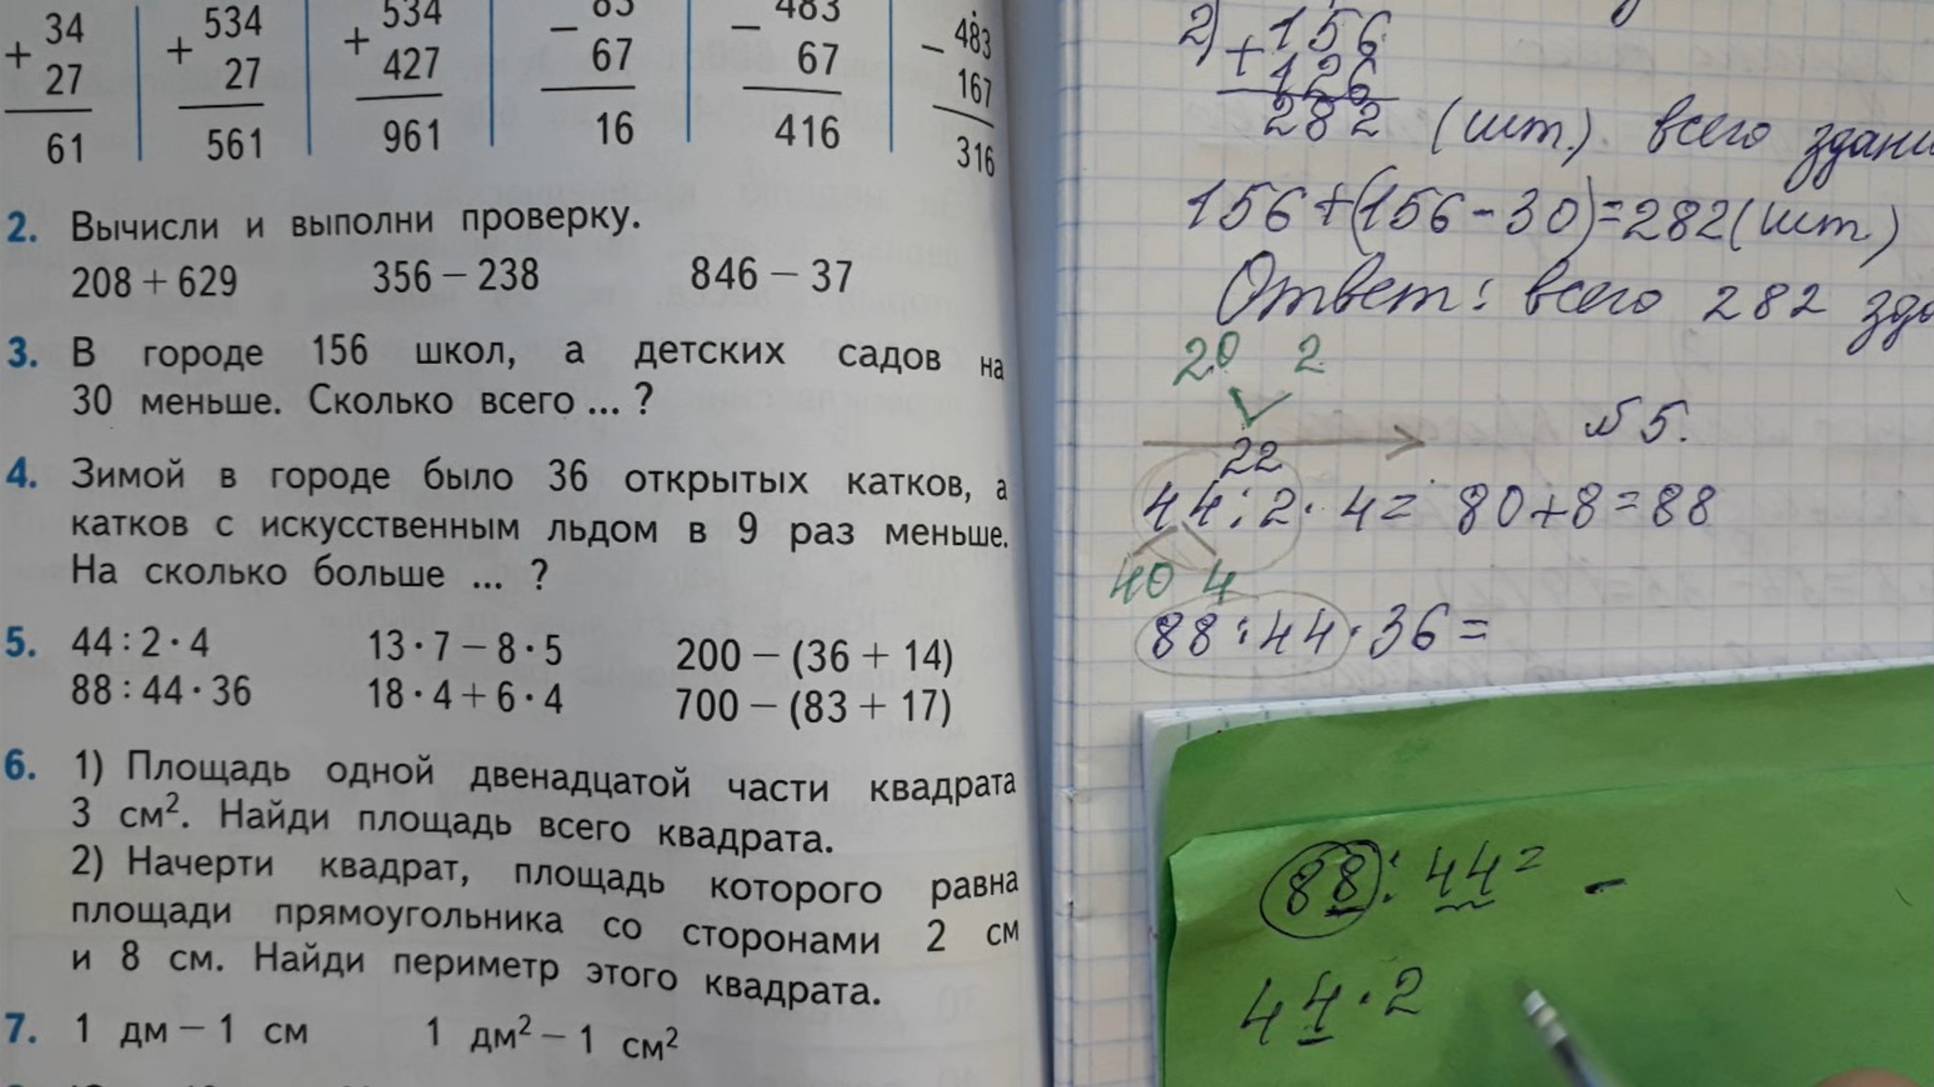 + 34 + 534 + 534 − 83 − 483 − 483
27 27 427 67 67 167
61 561 961 16 416 316
2. Вычисли и выполни проверку.
208 + 629 356 − 238 846 − 37
3. В городе 156 школ, а детских садов на
30 меньше. Сколько всего ... ?
4. Зимой в городе было 36 открытых катков, а
катков с искусственным льдом в 9 раз меньше.
На сколько больше ... ?
5. 44 : 2 · 4 13 · 7 − 8 · 5 200 − (36 + 14)
88 : 44 · 36 18 · 4 + 6 · 4 700 − (83 + 17)
6. 1) Площадь одной двенадцатой части квадрата
3 см². Найди площадь всего квадрата.
2) Начерти квадрат, площадь которого равна
площади прямоугольника со сторонами 2 см
и 8 см. Найди периметр этого квадрата.
7. 1 дм − 1 см 1 дм² − 1 см²
2) + 156
126
282 (шт.) всего здани
156+(156-30)=282(шт.)
Ответ: всего 282 зда
20 2
№5.
22
44:2·4= 80+8=88
40 4
88:44·36=
88:44= -
44·2